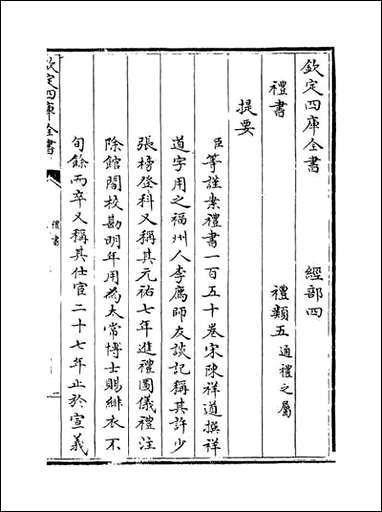 欽定四庫全書　　經部四
禮書　　禮類五通禮之屬
提要
臣等謹案禮書一百五十卷宋陳祥道撰祥
道字用之福州人李廌師友談記稱其許少
張榜登科又稱其元祐七年進禮圖儀禮注
除館閣校勘明年用為太常博士賜緋衣不
旬餘而卒又稱其仕宦二十七年止於宣義
欽定四庫全書
禮書
一